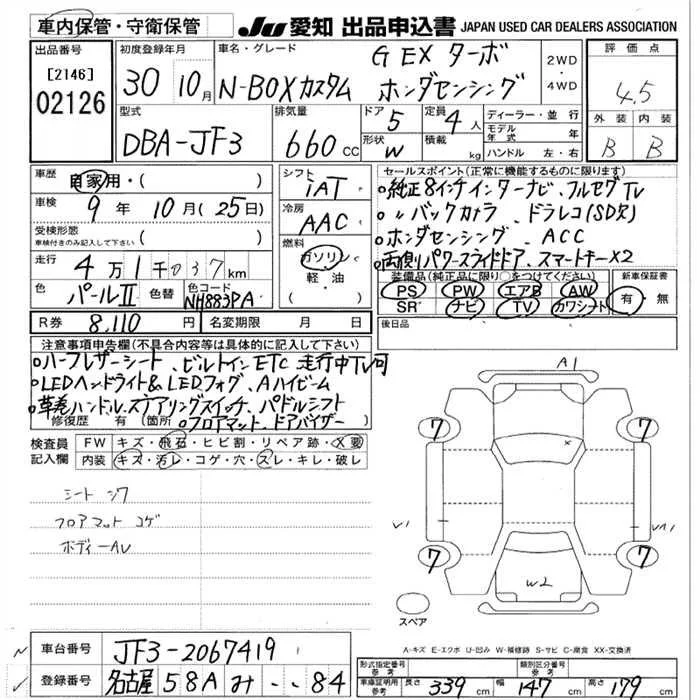 車内保管・守衛保管
JU 愛知 出品申込書 JAPAN USED CAR DEALERS ASSOCIATION
出品番号 初度登録年月 車名・グレード 評価点
[2146]
02126
30年 10月
N-BOXカスタム G EX ターボ ホンダセンシング
2WD・4WD
4.5
型式 排気量 ドア 定員 ディーラー・並行 外装 内装
DBA-JF3 660cc 5 4人
モデル年式 年
形状 W 積載 kg ハンドル 左・右
B B
車歴 自家用・( )
シフト iAT
セールスポイント(正常に機能するものに限ります)
車検 9年 10月(25日)
冷房 AAC
・純正8インチインターナビ、フルセグTV
・〃バックカメラ、ドラレコ(SD欠)
・ホンダセンシング、ACC
・両側パワースライドドア、スマートキーX2
受検形態 車検付きのみ記入して下さい ( )
燃料 ガソリン・軽油・( )
走行 4万1千037km
装備品(純正品に限り○をつけてください) 新車保証書
PS PW エアB AW 有・無
SR ナビ TV カワシート
色 パールII 色替 色コード NH883PA
R券 8,110円 名変期限 月 日
後日品
注意事項申告欄(不具合内容等は具体的に記入して下さい)
・ハーフレザーシート、ビルトインETC 走行中TV可
・LEDヘンドライト&LEDフォグ、Aハイビーム
・革巻ハンドル、ステアリングスイッチ、パドルシフト
・フロアマット、ドアバイザー
修復歴 有 (箇所
検査員記入欄
FW キズ・飛石・ヒビ割・リペア跡・X要
内装 キズ・汚レ・コゲ・穴・スレ・キレ・破レ
シート シワ
フロアマット コゲ
ボディーAU
A1
7
7
7
7
W2
スペア
A-キズ E-エクボ U-凹み W-補修跡 S-サビ C-腐食 XX-交換済
車台番号 JF3-2067419
登録番号 名古屋 58A み--84
形式指定番号 参考 類別区分番号 参考
車庫証明用 参考 長さ 339cm 幅 147cm 高さ 179cm